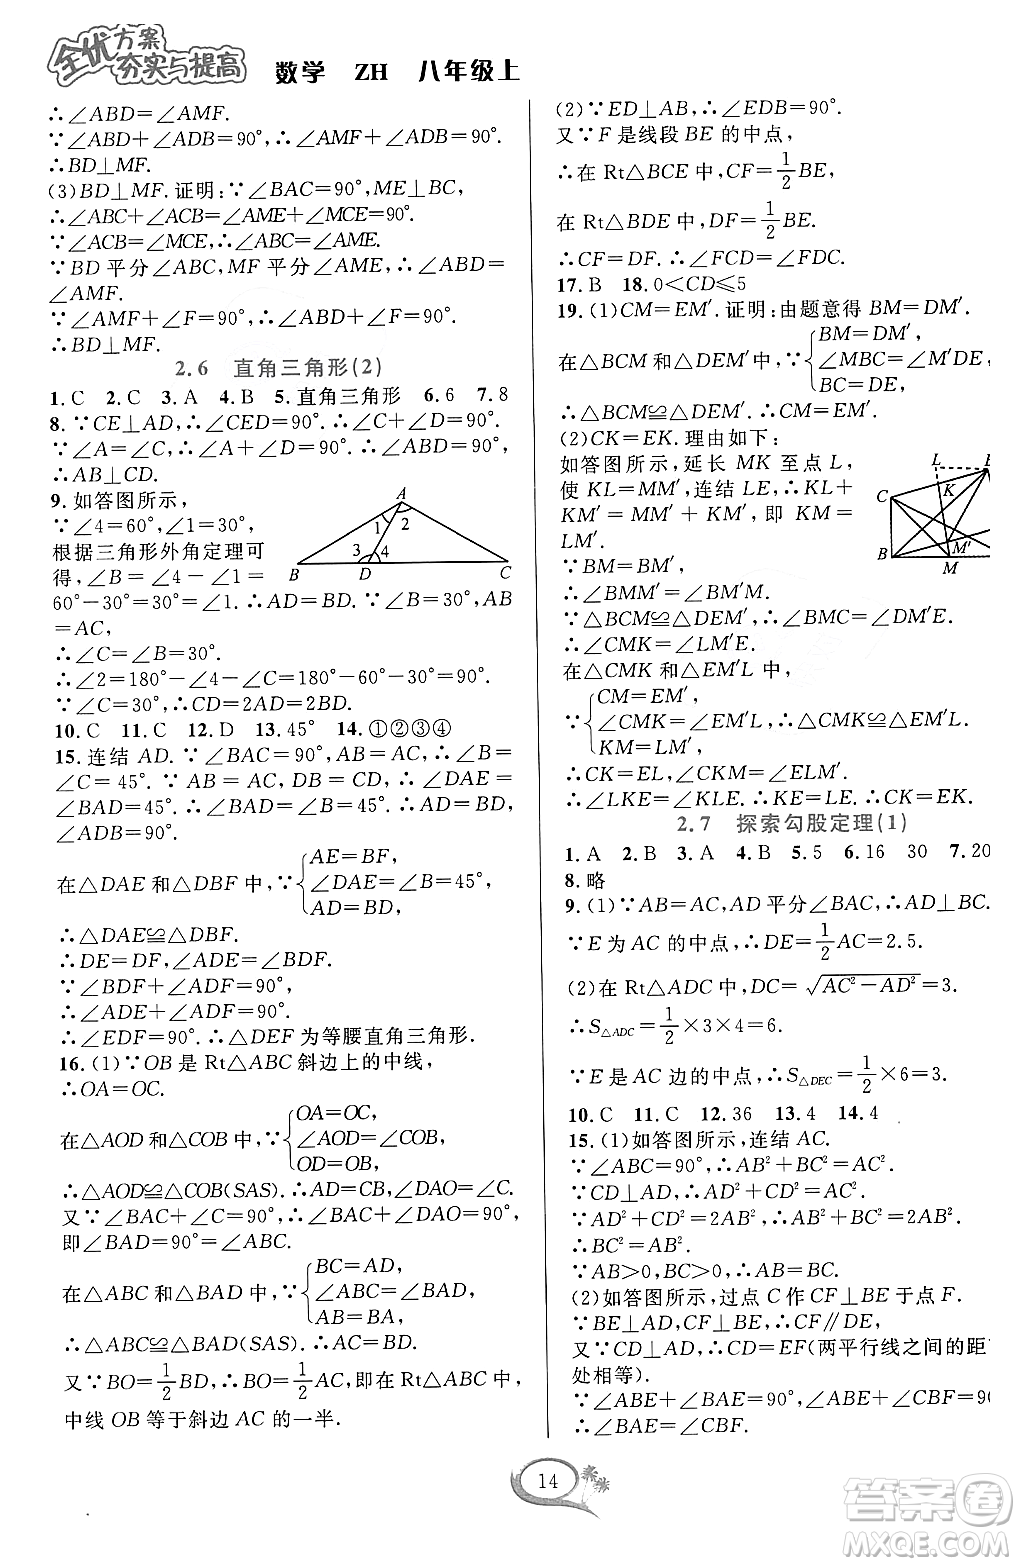 全优方案
夯实与提高 数学 ZH 八年级上
∴∠ABD=∠AMF.
∵∠ABD+∠ADB=90°,∴∠AMF+∠ADB=90°,
∴BD⊥MF.
(3)BD⊥MF.证明:∵∠BAC=90°,ME⊥BC,
∴∠ABC+∠ACB=∠AME+∠MCE=90°.
∵∠ACB=∠MCE,∴∠ABC=∠AME.
∵BD平分∠ABC,MF平分∠AME,∴∠ABD=
∠AMF.
∵∠AMF+∠F=90°,∴∠ABD+∠F=90°,
∴BD⊥MF.
2.6 直角三角形(2)
1.C 2.C 3.A 4.B 5.直角三角形 6.6 7.8
8.∵CE⊥AD,∴∠CED=90°.∴∠C+∠D=90°.
∵∠A=∠C,∴∠A+∠D=90°.∴∠ABD=90°.
∴AB⊥CD.
9.如答图所示,
∵∠4=60°,∠1=30°,
根据三角形外角定理可
得,∠B=∠4-∠1=
60°-30°=30°=∠1.∴AD=BD.∵∠B=30°,AB
=AC,
∴∠C=∠B=30°.
∴∠2=180°-∠4-∠C=180°-60°-30°=90°.
∵∠C=30°,∴CD=2AD=2BD.
A
1 2
3 4
B D C
10.C 11.C 12.D 13.45° 14.①②③④
15.连结AD.∵∠BAC=90°,AB=AC,∴∠B=
∠C=45°.∵AB=AC,DB=CD,∴∠DAE=
∠BAD=45°.∴∠BAD=∠B=45°.∴AD=BD,
∠ADB=90°.
在△DAE和△DBF中,∵{AE=BF,
∠DAE=∠B=45°,
AD=BD,
∴△DAE≌△DBF.
∴DE=DF,∠ADE=∠BDF.
∵∠BDF+∠ADF=90°,
∴∠ADE+∠ADF=90°.
∴∠EDF=90°.∴△DEF为等腰直角三角形.
16.(1)∵OB是Rt△ABC斜边上的中线,
∴OA=OC.
在△AOD和△COB中,∵{OA=OC,
∠AOD=∠COB,
OD=OB,
∴△AOD≌△COB(SAS).∴AD=CB,∠DAO=∠C.
又∵∠BAC+∠C=90°,∴∠BAC+∠DAO=90°,
即∠BAD=90°=∠ABC.
在△ABC和△BAD中,∵{BC=AD,
∠ABC=∠BAD,
AB=BA,
∴△ABC≌△BAD(SAS).∴AC=BD.
又∵BO=1/2BD,∴BO=1/2AC,即在Rt△ABC中,
中线OB等于斜边AC的一半.
(2)∵ED⊥AB,∴∠EDB=90°.
又∵F是线段BE的中点,
∴在Rt△BCE中,CF=1/2BE,
在Rt△BDE中,DF=1/2BE.
∴CF=DF.∴∠FCD=∠FDC.
17.B 18.0<CD≤5
19.(1)CM=EM′.证明:由题意得BM=DM′.
在△BCM和△DEM′中,∵{BM=DM′,
∠MBC=∠M′DE=
BC=DE,
∴△BCM≌△DEM′.∴CM=EM′.
(2)CK=EK.理由如下:
如答图所示,延长MK至点L,
使KL=MM′,连结LE,∴KL+
KM′=MM′+KM′,即KM=
LM′.
∵BM=BM′,
∴∠BMM′=∠BM′M.
∵△BCM≌△DEM′,∴∠BMC=∠DM′E.
∴∠CMK=∠LM′E.
在△CMK和△EM′L中,
∵{CM=EM′,
∠CMK=∠EM′L,∴△CMK≌△EM′L.
KM=LM′,
∴CK=EL,∠CKM=∠ELM′.
∴∠LKE=∠KLE.∴KE=LE.∴CK=EK.
L
C K
B M′
M
2.7 探索勾股定理(1)
1.A 2.B 3.A 4.B 5.5 6.16 30 7.20
8.略
9.(1)∵AB=AC,AD平分∠BAC,∴AD⊥BC.
∵E为AC的中点,∴DE=1/2AC=2.5.
(2)在Rt△ADC中,DC=√(AC²-AD²)=3.
∴S△ADC=1/2×3×4=6.
∵E是AC边的中点,∴S△DEC=1/2×6=3.
10.C 11.C 12.36 13.4 14.4
15.(1)如答图所示,连结AC.
∵∠ABC=90°,∴AB²+BC²=AC².
∵CD⊥AD,∴AD²+CD²=AC².
∵AD²+CD²=2AB²,∴AB²+BC²=2AB².
∴BC²=AB².
∵AB>0,BC>0,∴AB=BC.
(2)如答图所示,过点C作CF⊥BE于点F.
∵BE⊥AD,CF⊥BE,∴CF∥DE,
又∵CD⊥AD,∴CD=EF(两平行线之间的距
处相等).
∵∠ABE+∠BAE=90°,∠ABE+∠CBF=90
∴∠BAE=∠CBF.
14
答案圈
MXQE.COM